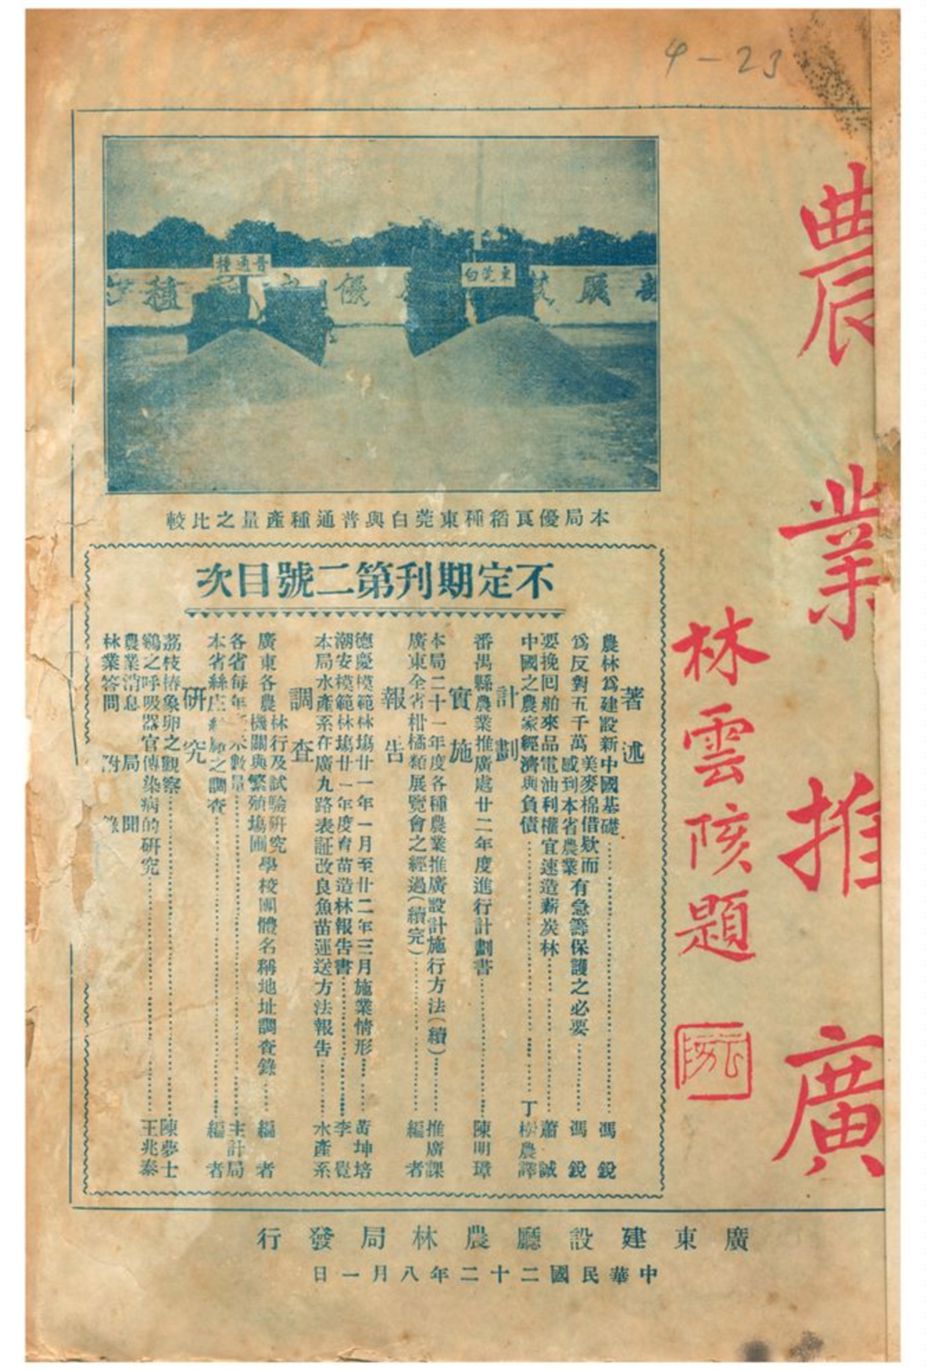 4-23
農業推廣
林雲陔題
普通種
東莞白
本局優良稻種東莞白與普通種產量之比較
不定期刊第二號目次
著述
農林爲建設新中國基礎 馮銳
爲反對五千萬美麥棉借欵而感到本省農業有急籌保護之必要 馮銳
要挽回舶來品電油利權宜速造薪炭林 蕭誠
中國之農家經濟與負債 丁 農譯
計劃
番禺縣農業推廣處廿二年度進行計劃書 陳明璋
實施
本局二十一年度各種農業推廣設計施行方法(續) 推廣課
廣東全省柑橘類展覽會之經過(續完) 編者
報告
德慶模範林塲廿一年一月至廿二年三月施業情形 黃坤培
潮安模範林塲廿一年度育苗造林報告書 李
本局水產系在廣九路表証改良魚苗運送方法報告 水產系
調查
廣東各農林行及試驗研究機關與繁殖塲圃學校團體名稱地址調查錄 編者
各省每年 米數量 主計局
本省絲庄 之調查 編者
研究
荔枝椿象卵之觀察 陳夢士
鷄之呼吸器官傳染病的研究 王兆泰
農業消息 局聞
林業答問 附錄
廣東建設廳農林局發行
中華民國二十二年八月一日